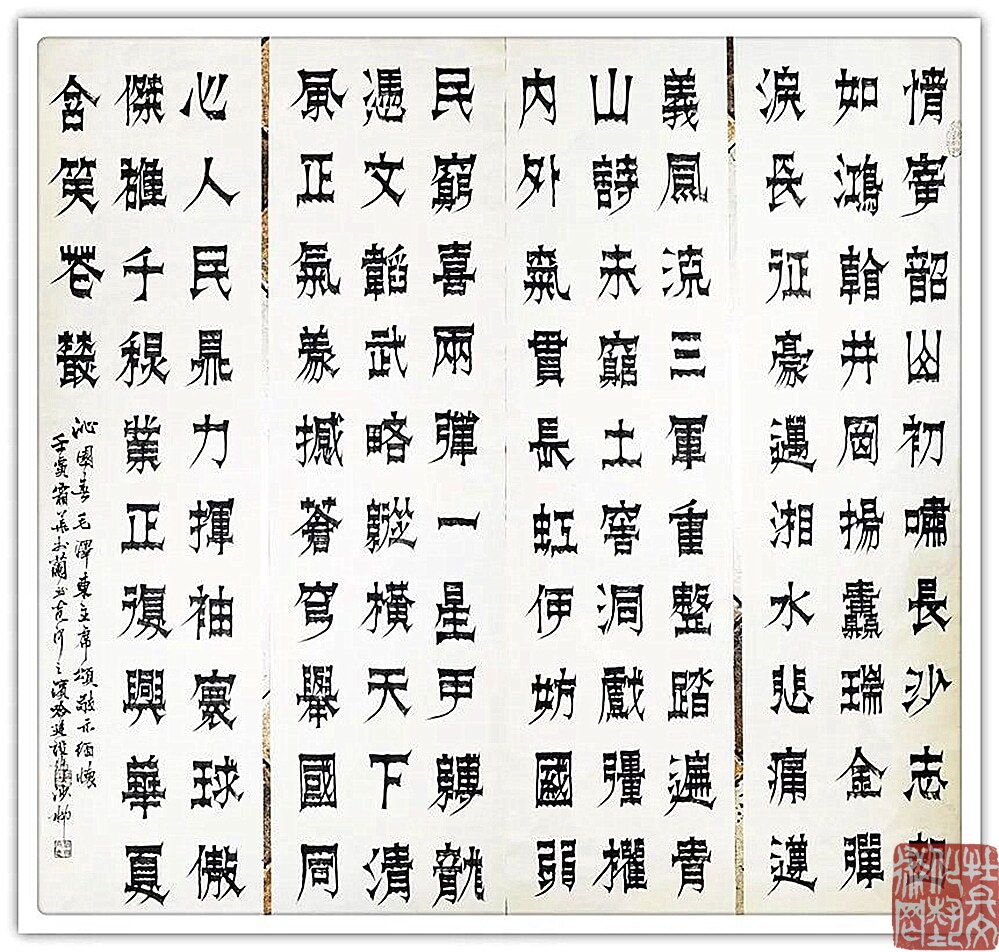 情寄韶山初嘯長沙志
如鴻翰井岡揚纛瑞金彈
淚長征豪邁湘水悲痛遵
義風流三軍重整踏遍青
山詩未窮土窰洞戲彊權
内外氣貫長虹伊始國弱
民窮喜兩彈一星甲轉龍
憑文韜武略縱橫天下清
風正氣義撼蒼穹舉國同
心人民鼎力揮袖寰球傲
傑雄千秋業正復興華夏
含笑花叢
沁園春毛澤東主席頌敬示緬懷
壬寅霜華於蘭山黄河之濱